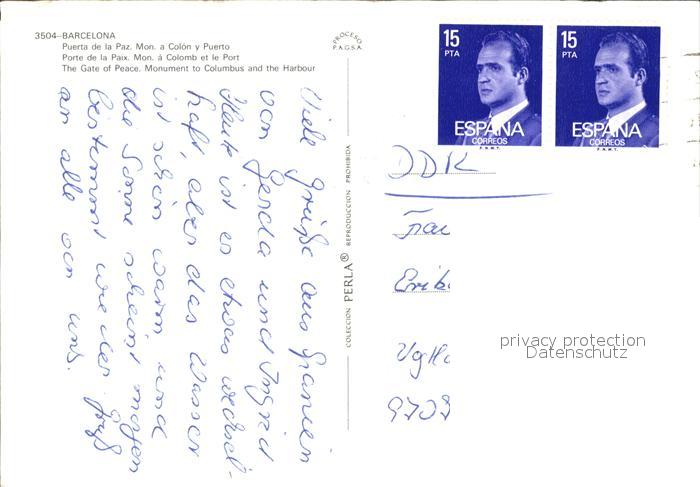 3504—BARCELONA
Puerta de la Paz. Mon. a Colón y Puerto
Porte de la Paix. Mon. á Colomb et le Port
The Gate of Peace. Monument to Columbus and the Harbour
PROCESO
P.A.G.S.A.
15
PTA
ESPAÑA
CORREOS
F.N.M.T.
15
PTA
ESPAÑA
CORREOS
F.N.M.T.
Viele Grüße aus Spanien
von Gerda und Ingrid
Heute ist es etwas wechsel-
haft, aber das Wasser
ist schön warm und
die Sonne scheint morgen
bestimmt wieder. Gruß
an alle von uns.
COLECCION PERLA® REPRODUCCION PROHIBIDA
DDR
Frau
Erik
privacy protection
Datenschutz